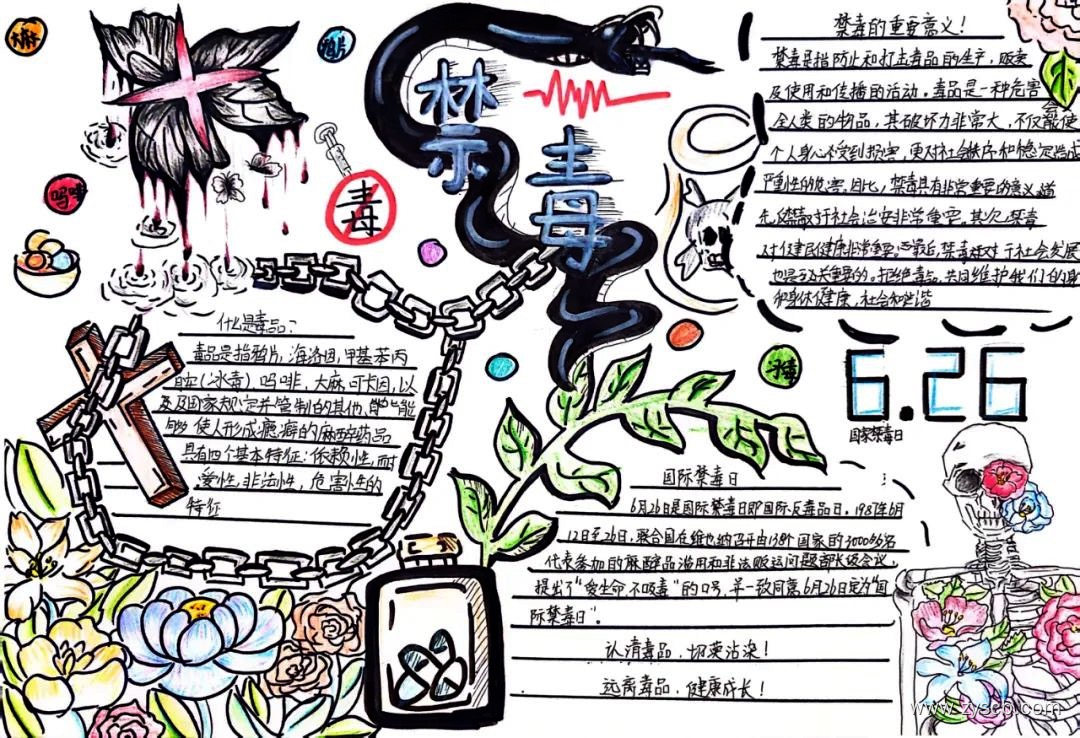 大麻
鸦片
吗啡
禁毒
毒
冰毒
什么是毒品？
毒品是指鸦片，海洛因，甲基苯丙
(冰毒)，吗啡，大麻，可卡因，以
及国家规定并管制的其他
够使人形成瘾癖的麻醉药品
具有四个基本特征：依赖性，耐
受性，非法性，危害性的
特征
禁毒的重要意义！
禁毒是指防止和打击毒品的生产，贩卖
及使用和传播的活动。毒品是一种危害
全人类的物品，其破坏力非常大，不仅能使
个人身心不受到损害，更对社会秩序和稳定造成
严重性的危害。因此，禁毒具有非常重要的意义
对于社会治安非常重要。其次，禁毒
对住民健康非常重要。最后，禁毒对于社会发展
也是至关重要的。拒绝毒品，共同维护我们的
和身体健康，社会和谐
6.26
国家禁毒日
国际禁毒日
6月26日是国际禁毒日即国际反毒品日。1987年6月
12日至26日，联合国在维也纳召开由138个国家的3000多名
代表参加的麻醉品滥用和非法贩运问题部长级会议，
提出了“爱生命 不吸毒”的口号，并一致同意6月26日定为“国
际禁毒日”。
认清毒品，切莫沾染！
远离毒品，健康成长！
www.zyscb.com